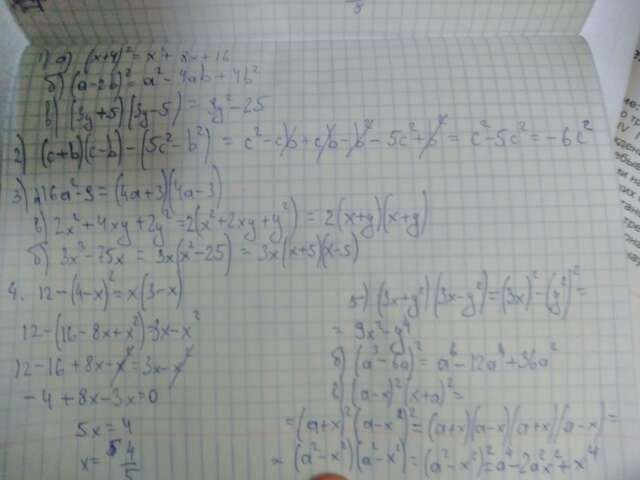 1) а) (x+4)² = x² + 8x + 16
б) (a-2b)² = a² - 4ab + 4b²
в) (3y+5)(3y-5) = 3y² - 25
2) (c+b)(c-b) - (5c²-b²) = c² - cb + cb - b² - 5c² + b² = c² - 5c² = -6c²
3) 16a² - 9 = (4a+3)(4a-3)
в) 2x² + 4xy + 2y² = 2(x² + 2xy + y²) = 2(x+y)(x+y)
б) 3x³ - 75x = 3x(x² - 25) = 3x(x+5)(x-5)
4. 12 - (4-x)² = x(3-x)
12 - (16 - 8x + x²) = 3x - x²
12 - 16 + 8x - x² = 3x - x²
-4 + 8x - 3x = 0
5x = 4
x = 4/5
5) (3x+y²)(3x-y²) = (3x)² - (y²)² =
= 9x² - y⁴
б) (a³ - 6a)² = a⁶ - 12a⁴ + 36a²
в) (a-x)²(x+a)² =
= (a+x)²(a-x)² = (a+x)(a-x)(a+x)(a-x) =
= (a²-x²)(a²-x²) = (a²-x²)² = a⁴ - 2a²x² + x⁴